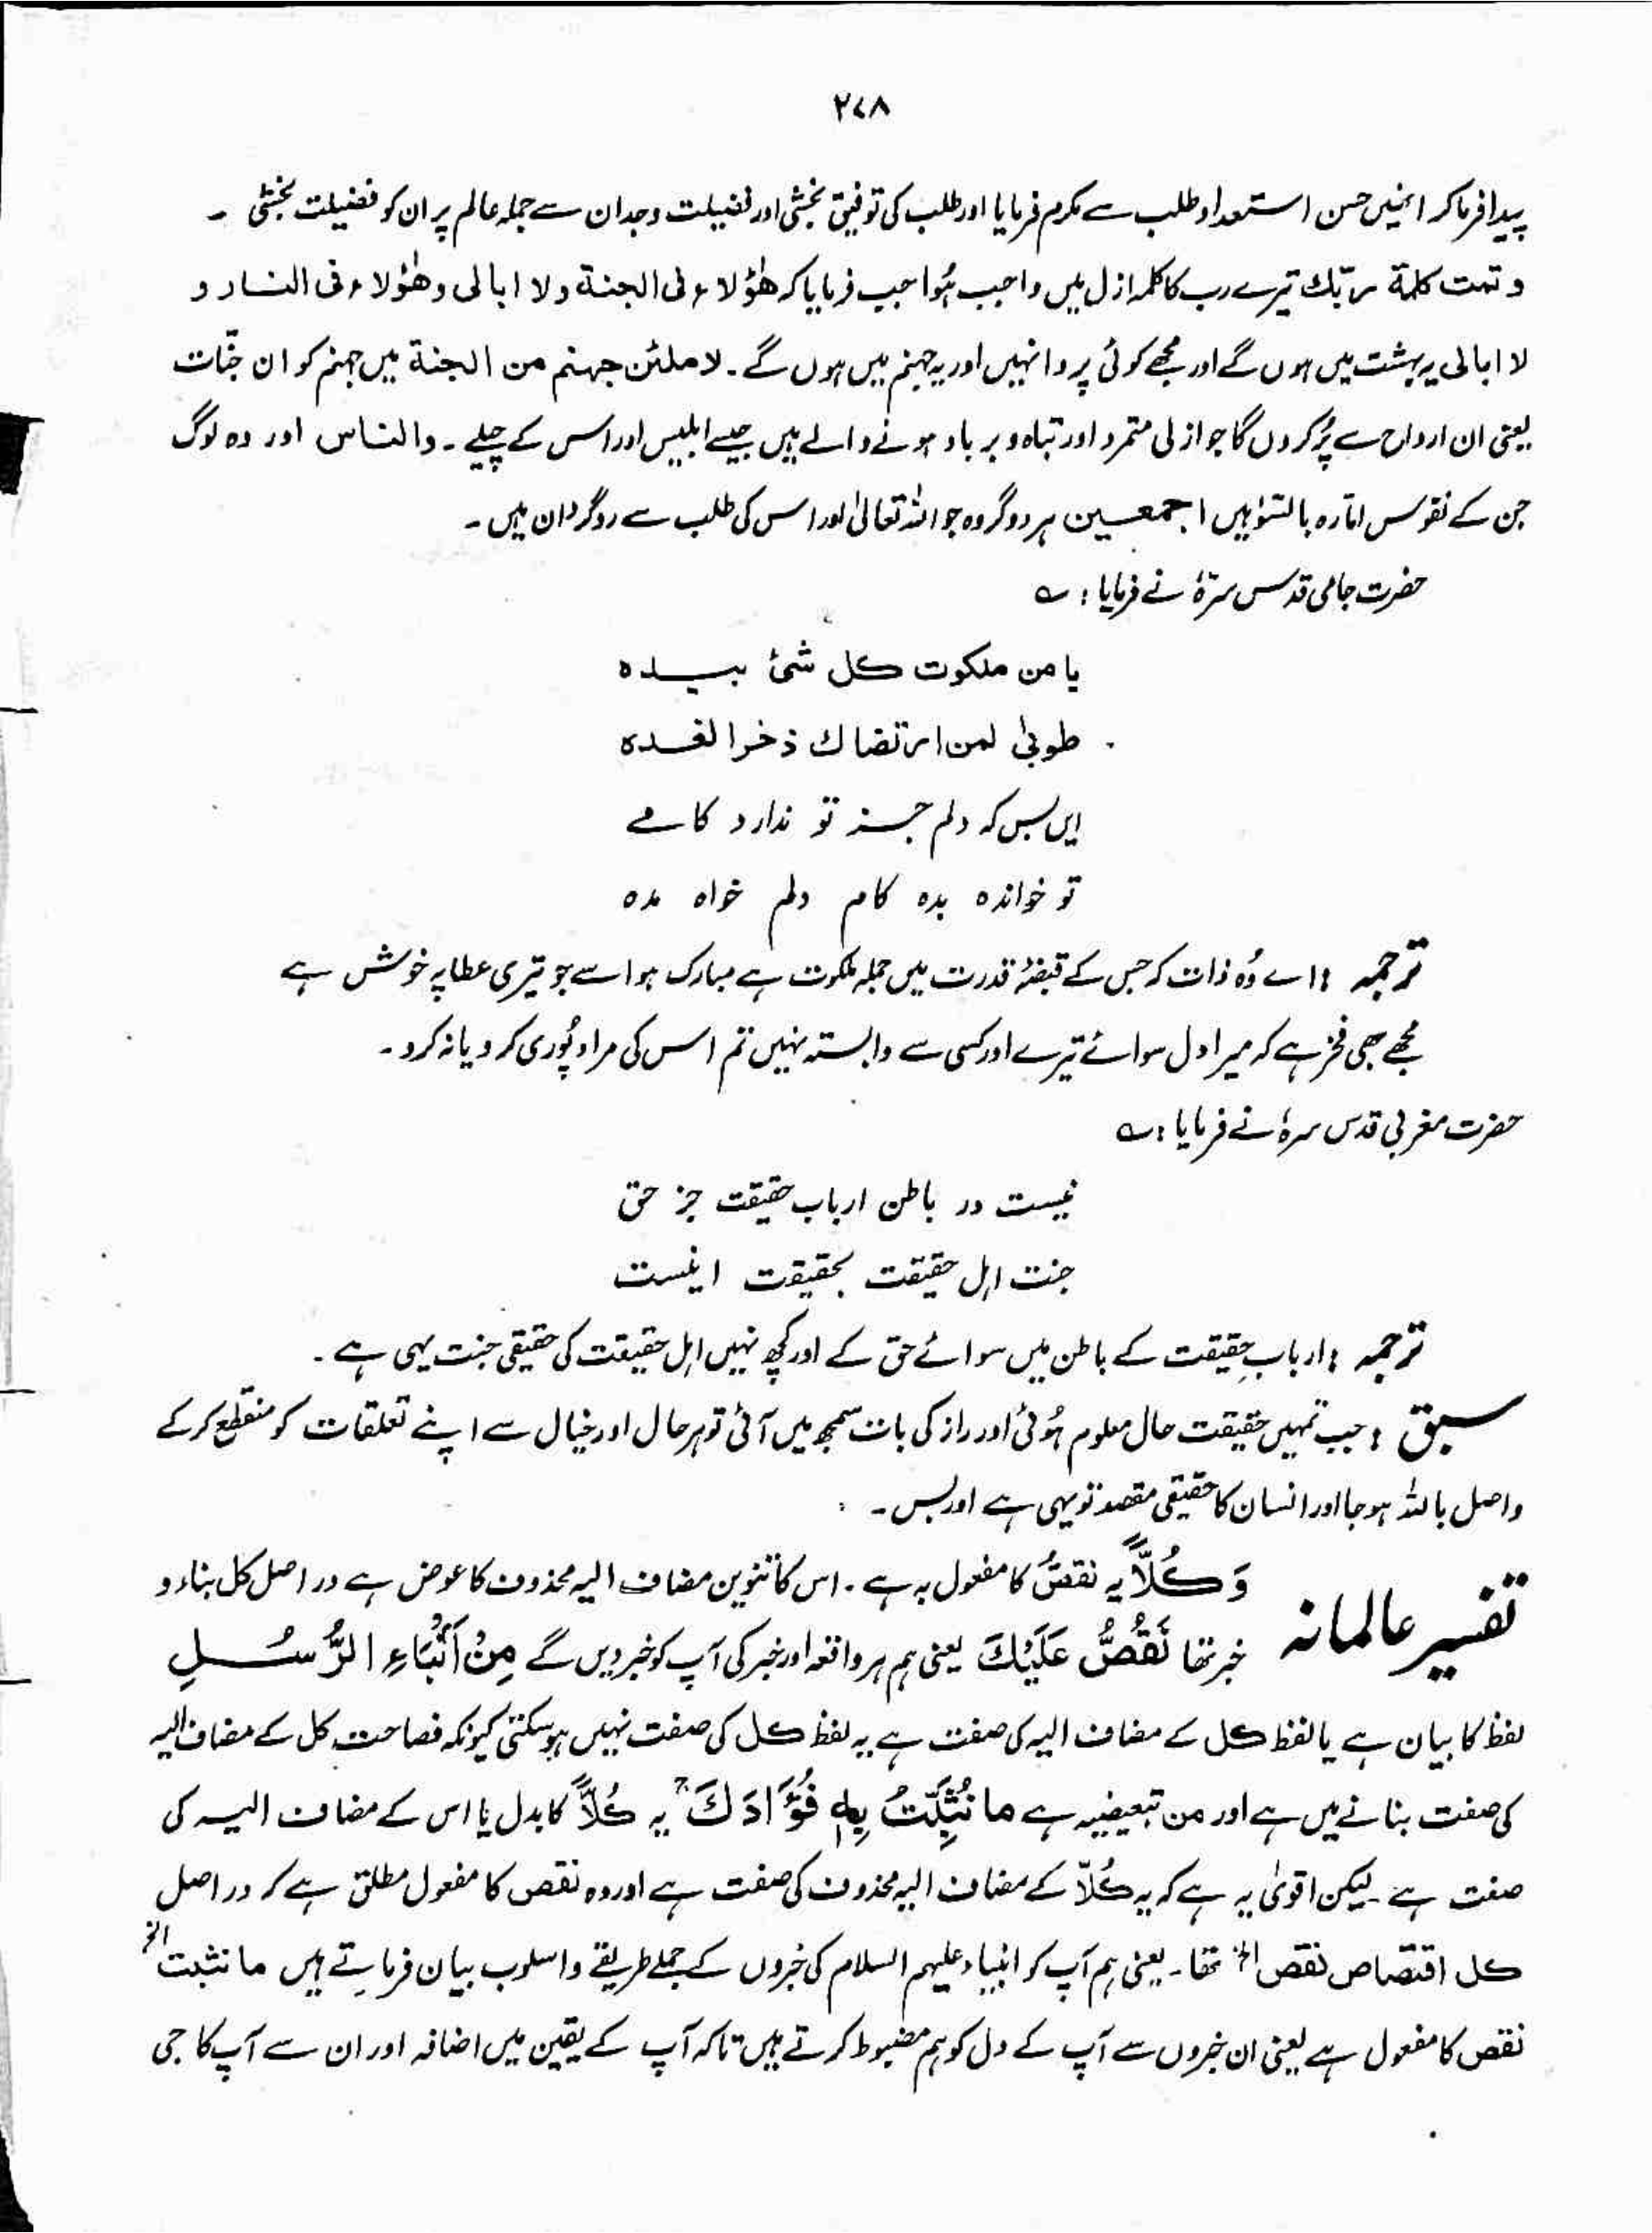 ۲۷۸
پیدا فرما کر انہیں حسن استعداد طلب سے مکرم فرمایا اور طلب کی توفیق بخشی اور فضیلت وجدان سے جملہ عالم پر ان کو فضیلت بخشی ۔
و تمت کلمة ربّك تیرے رب کا کلمہ ازل میں واجب ہُوا جب فرمایا کہ هٰؤلاء فی الجنة ولا ابالی وهٰؤلاء فی النار و
لا ابالی یہ بہشت میں ہوں گے اور مجھے کوئی پروا نہیں اور یہ جہنم میں ہوں گے ۔ لاملئن جهنم من الجنة میں جہنم کو ان جنّات
یعنی ان ارواح سے پُر کروں گا جو ازلی متمرد اور تباہ و برباد ہونے والے ہیں جیسے ابلیس اور اس کے چیلے ۔ والناس اور وہ لوگ
جن کے نفوس امّارہ بالسّوٰ ہیں اجمعین ہر دو گروہ جو اللہ تعالیٰ اور اس کی طلب سے روگردان ہیں ۔
حضرت جامی قدس سرّہٗ نے فرمایا : ؎
یا من ملکوت کل شئ بیده
طوبیٰ لمن ارتضاك ذخرا لغده
ایں بس کہ دلم جز تو ندارد کامے
تو خواندہ بدہ کام دلم خواہ مدہ
ترجمہ : اے وُہ ذات کہ جس کے قبضۂ قدرت میں جملہ ملکوت ہے مبارک ہو اسے جو تیری عطا پہ خوش ہے
مجھے بھی فخر ہے کہ میرا دل سوائے تیرے اور کسی سے وابستہ نہیں تم اس کی مراد پُوری کرو یا نہ کرو ۔
حضرت مغربی قدس سرہٗ نے فرمایا : ؎
نیست در باطن ارباب حقیقت جز حق
جنت اہل حقیقت بحقیقت اینست
ترجمہ : اربابِ حقیقت کے باطن میں سوائے حق کے اور کچھ نہیں اہل حقیقت کی حقیقی جنت یہی ہے ۔
سبق : جب تمہیں حقیقت حال معلوم ہُوئی اور راز کی بات سمجھ میں آئی تو ہر حال اور خیال سے اپنے تعلقات کو منقطع کر کے
واصل باللہ ہو جا اور انسان کا حقیقی مقصد تو یہی ہے اور بس ۔
تفسیر عالمانہ وَكُلًّا یہ نقصُّ کا مفعول بہ ہے ۔ اس کا تنوین مضاف الیہ محذوف کا عوض ہے در اصل کل بناء و
خبر تھا نَقُصُّ عَلَيْكَ یعنی ہم ہر واقعہ اور خبر کی آپ کو خبر دیں گے مِنْ اَنْۢبَاءِ الرُّسُلِ
لفظ کا بیان ہے یا لفظ کل کے مضاف الیہ کی صفت ہے یہ لفظ کل کی صفت نہیں ہو سکتی کیونکہ فصاحت کل کے مضاف الیہ
کی صفت بنانے میں ہے اور من تبعیضیہ ہے مَا نُثَبِّتُ بِهٖ فُؤَادَكَ ۚ یہ کُلاًّ کا بدل یا اس کے مضاف الیہ کی
صفت ہے ۔ لیکن اقویٰ یہ ہے کہ یہ کُلاّ کے مضاف الیہ محذوف کی صفت ہے اور وہ نقص کا مفعول مطلق ہے کہ در اصل
کل اقتصاص نقص الخ تھا ۔ یعنی ہم آپ کو انبیاء علیہم السلام کی خبروں کے جملے طریقے و اسلوب بیان فرماتے ہیں ما نثبت الخ
نقص کا مفعول ہے یعنی ان خبروں سے آپ کے دل کو ہم مضبوط کرتے ہیں تاکہ آپ کے یقین میں اضافہ اور ان سے آپ کا جی